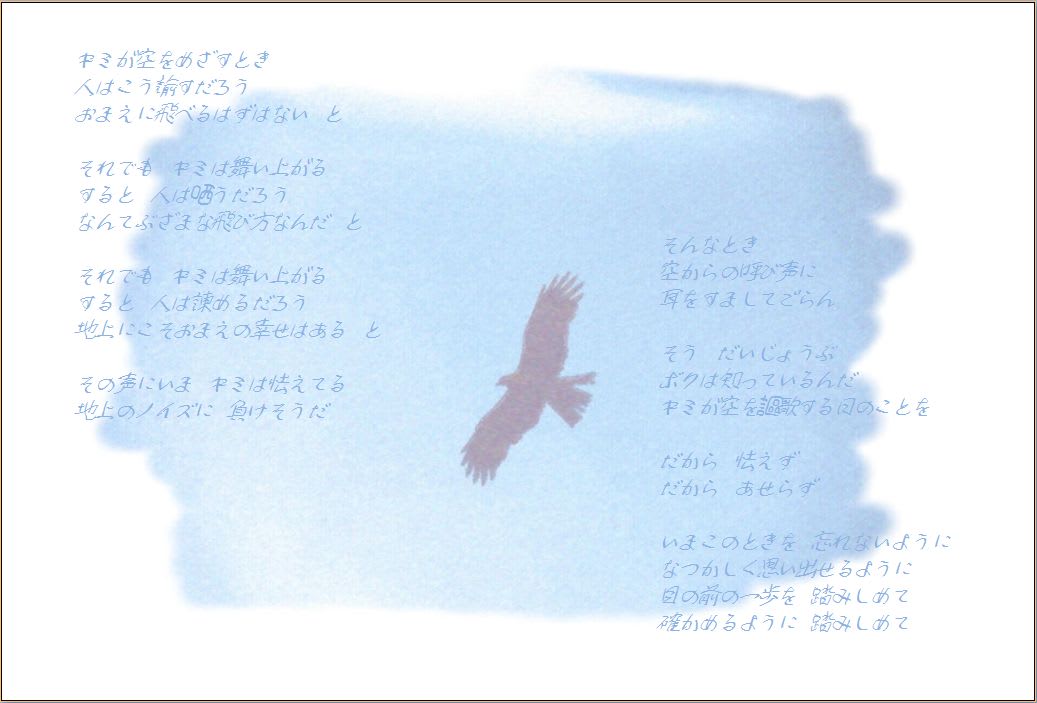 キミが空をめざすとき
人はこう諭すだろう
おまえに飛べるはずはない と
それでも キミは舞い上がる
すると 人は哂うだろう
なんてぶざまな飛び方なんだ と
それでも キミは舞い上がる
すると 人は諌めるだろう
地上にこそおまえの幸せはある と
その声にいま キミは怯えてる
地上のノイズに 負けそうだ
そんなとき
空からの呼び声に
耳をすましてごらん
そう だいじょうぶ
ボクは知っているんだ
キミが空を謳歌する日のことを
だから 怯えず
だから あせらず
いまこのときを 忘れないように
なつかしく思い出せるように
目の前の一歩を 踏みしめて
確かめるように 踏みしめて